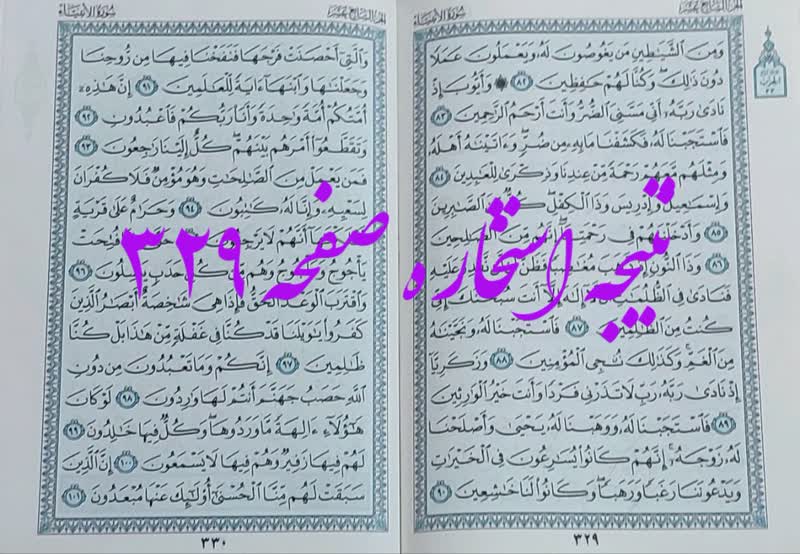 الجزء السابع عشر
سورة الأنبياء
ومن الشيطين من يغوصون له ويعملون عملا
دون ذلك وكنا لهم حفظين ٨٢ وأيوب إذ
نادى ربه أني مسني الضر وأنت أرحم الرحمين ٨٣
فاستجبنا له فكشفنا ما به من ضر وءاتينه أهله
ومثلهم معهم رحمة من عندنا وذكرى للعبدين ٨٤
وإسمعيل وإدريس وذا الكفل كل من الصبرين
٨٥ وأدخلنهم في رحمتنا إنهم من الصلحين
٨٦ وذا النون إذ ذهب مغضبا فظن أن لن نقدر عليه
فنادى في الظلمت أن لا إله إلا أنت سبحنك إني
كنت من الظلمين ٨٧ فاستجبنا له ونجينه
من الغم وكذلك نجي المؤمنين ٨٨ وزكريا
إذ نادى ربه رب لا تذرني فردا وأنت خير الوارثين
٨٩ فاستجبنا له ووهبنا له يحيى وأصلحنا
له زوجه إنهم كانوا يسرعون في الخيرات
ويدعوننا رغبا ورهبا وكانوا لنا خشعين ٩٠
٣٢٩
الجزء السابع عشر
سورة الأنبياء
والتي أحصنت فرجها فنفخنا فيها من روحنا
وجعلنها وابنها ءاية للعلمين ٩١ إن هذه
أمتكم أمة واحدة وأنا ربكم فاعبدون ٩٢
وتقطعوا أمرهم بينهم كل إلينا راجعون ٩٣
فمن يعمل من الصلحت وهو مؤمن فلا كفران
لسعيه وإنا له كتبون ٩٤ وحرام على قرية
أنهم لا يرجعون فتحت
يأجوج ومأجوج وهم من كل حدب ينسلون ٩٦
واقترب الوعد الحق فإذا هي شخصة أبصر الذين
كفروا يويلنا قد كنا في غفلة من هذا بل كنا
ظلمين ٩٧ إنكم وما تعبدون من دون
الله حصب جهنم أنتم لها واردون ٩٨ لو كان
هؤلاء ءالهة ما وردوها وكل فيها خلدون ٩٩
لهم فيها زفير وهم فيها لا يسمعون ١٠٠ إن الذين
سبقت لهم منا الحسنى أولئك عنها مبعدون ١٠١
٣٣٠
نتیجه استخاره صفحه ۳۲۹